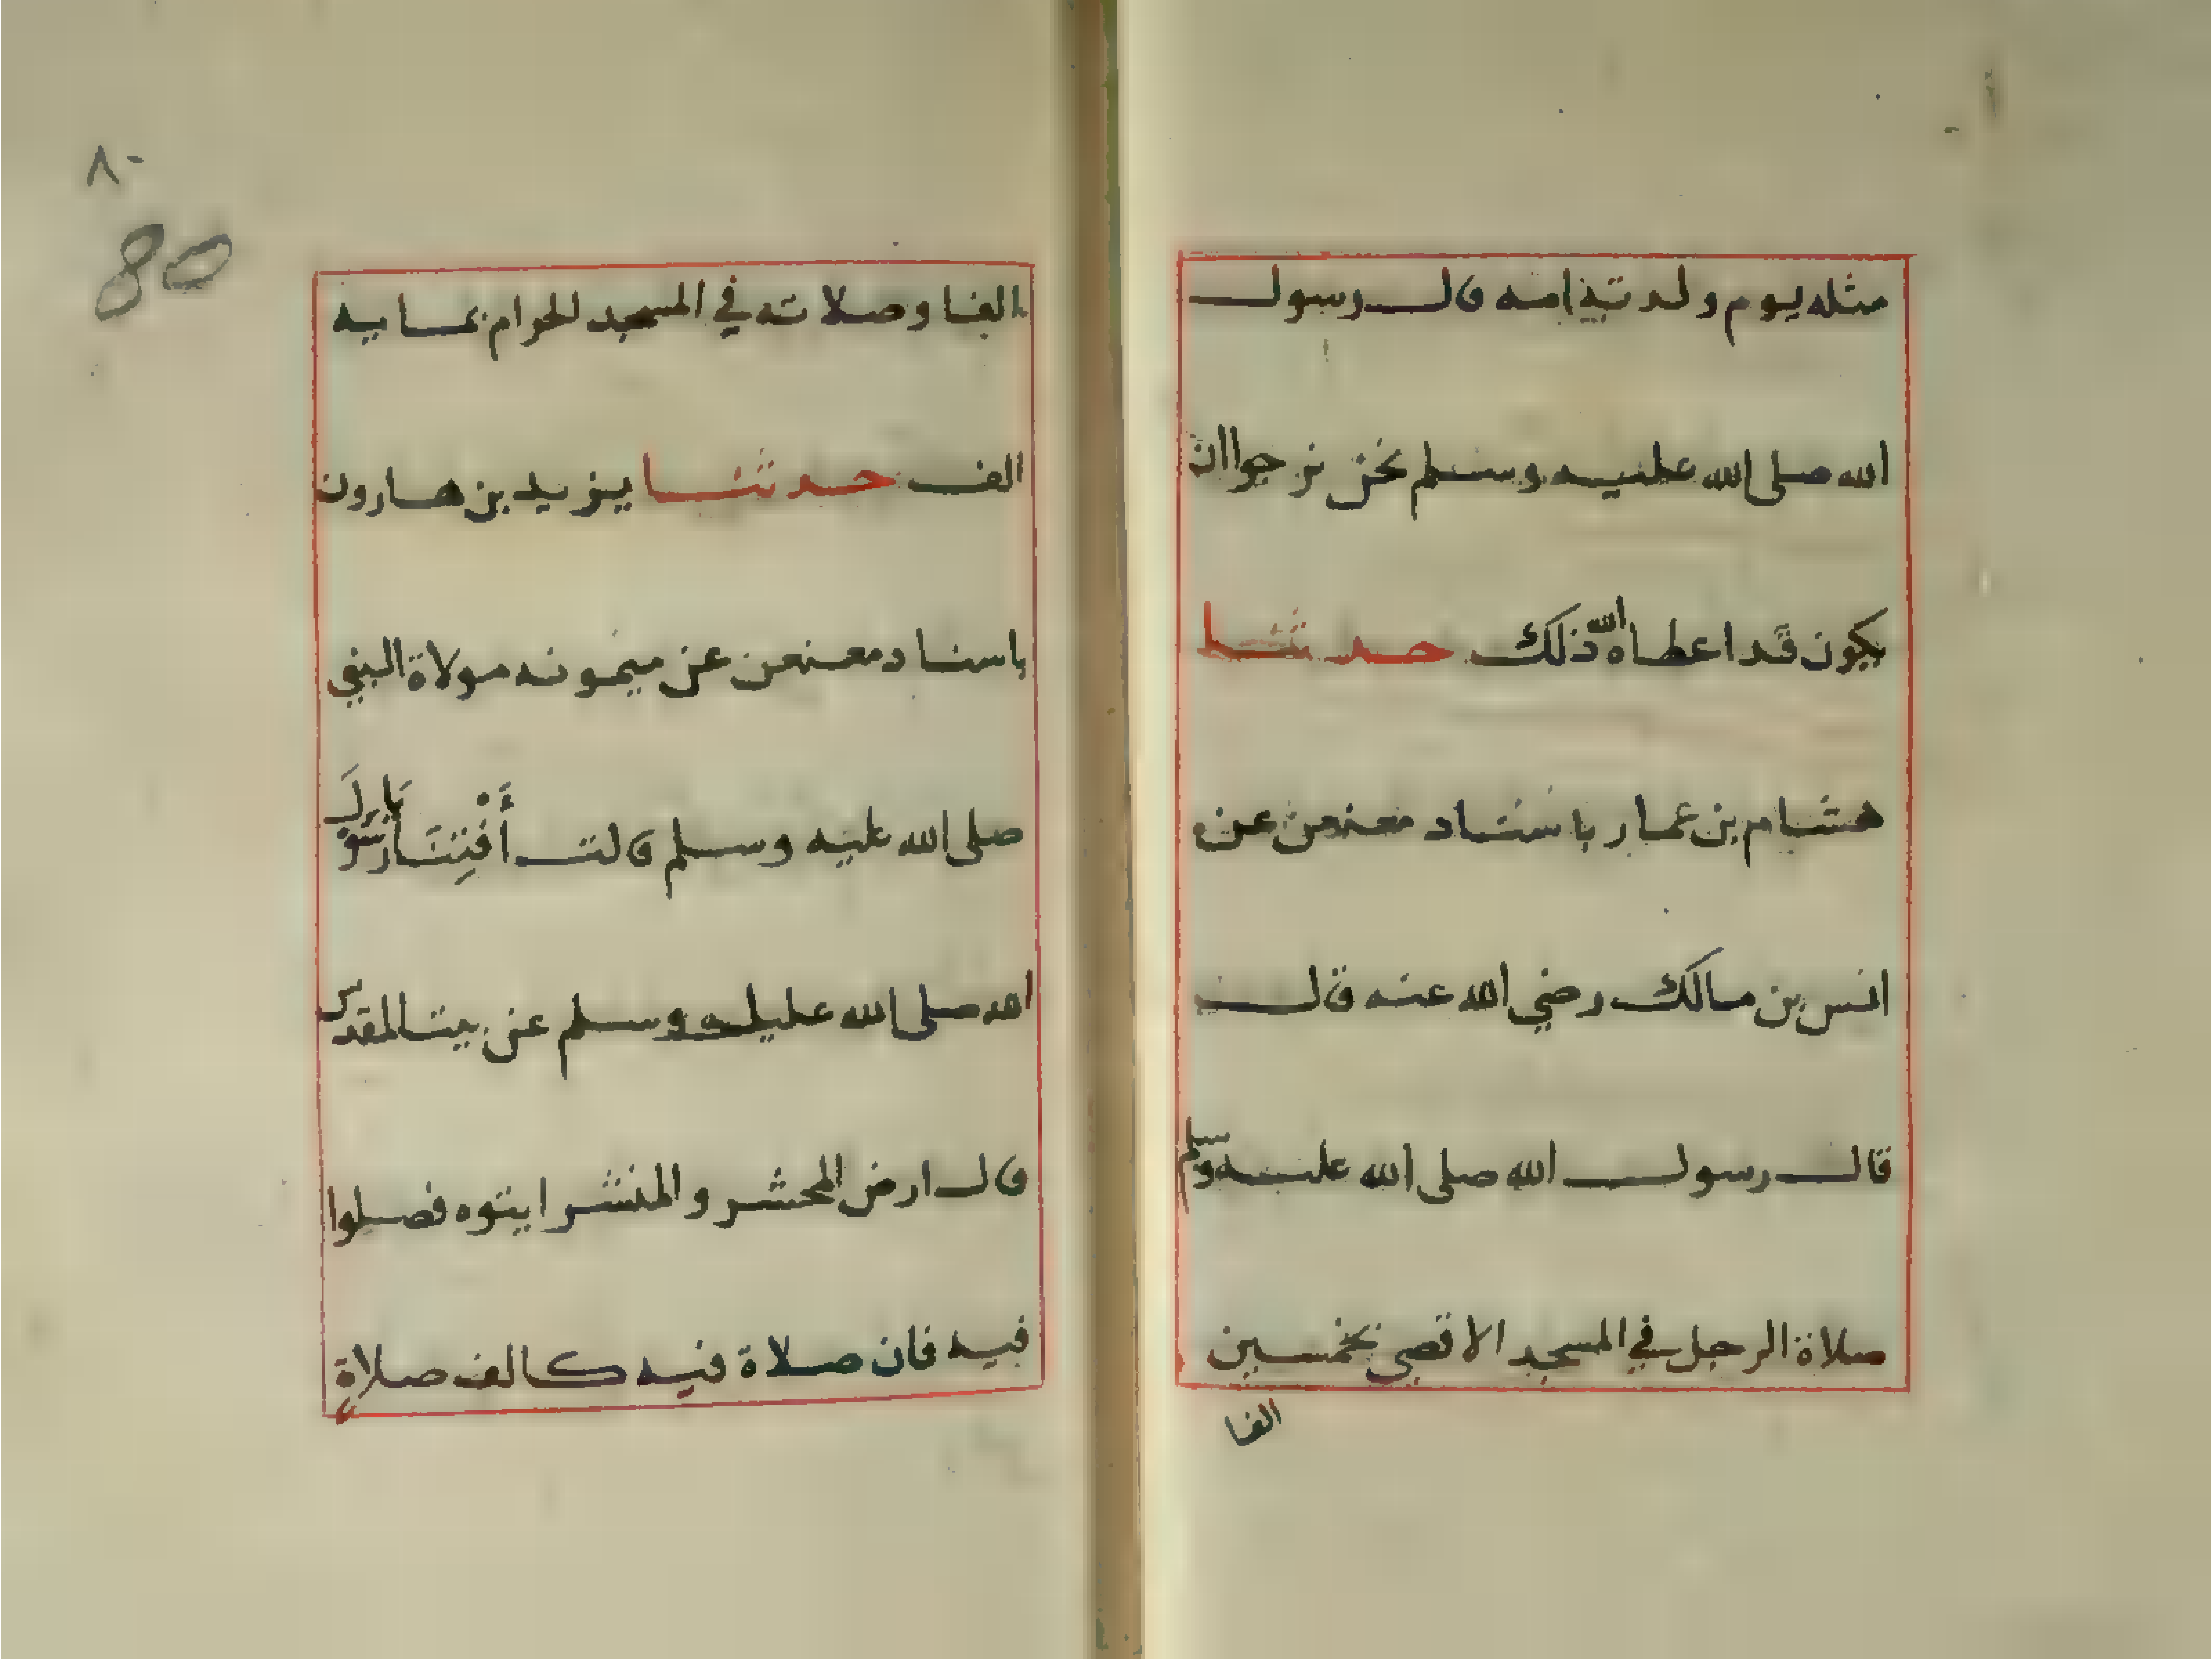 مثله يوم ولدته امه قال رسول
الله صلى الله عليه وسلم نحن نرجوا ان
يكون قد اعطاه الله ذلك حدثنا
هشام بن عمار باسناد معنعن عن
انس بن مالك رضي الله عنه قال
قال رسول الله صلى الله عليه وسلم
صلاة الرجل في المسجد الاقصى بخمسين
الفا
٨٠
80
الفا وصلاته في المسجد الحرام بماية
الف حدثنا يزيد بن هارون
باسناد معنعن عن ميمونه مولاة النبي
صلى الله عليه وسلم قالت أفتِنَا يارسول
الله صلى الله عليه وسلم عن بيت المقدس
قال ارض المحشر والمنشر ايتوه فصلوا
فيه فان صلاة فيه كالف صلاة